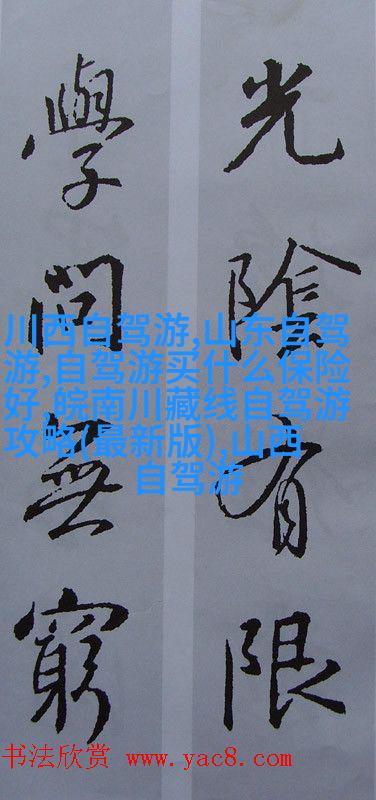 光陰有限
學問無窮
川西自驾游,山东自驾
游,自驾游买什么保险
好,皖南川藏线自驾游
攻略(最新版),山西
自驾游
书法欣赏 www.yac8.com